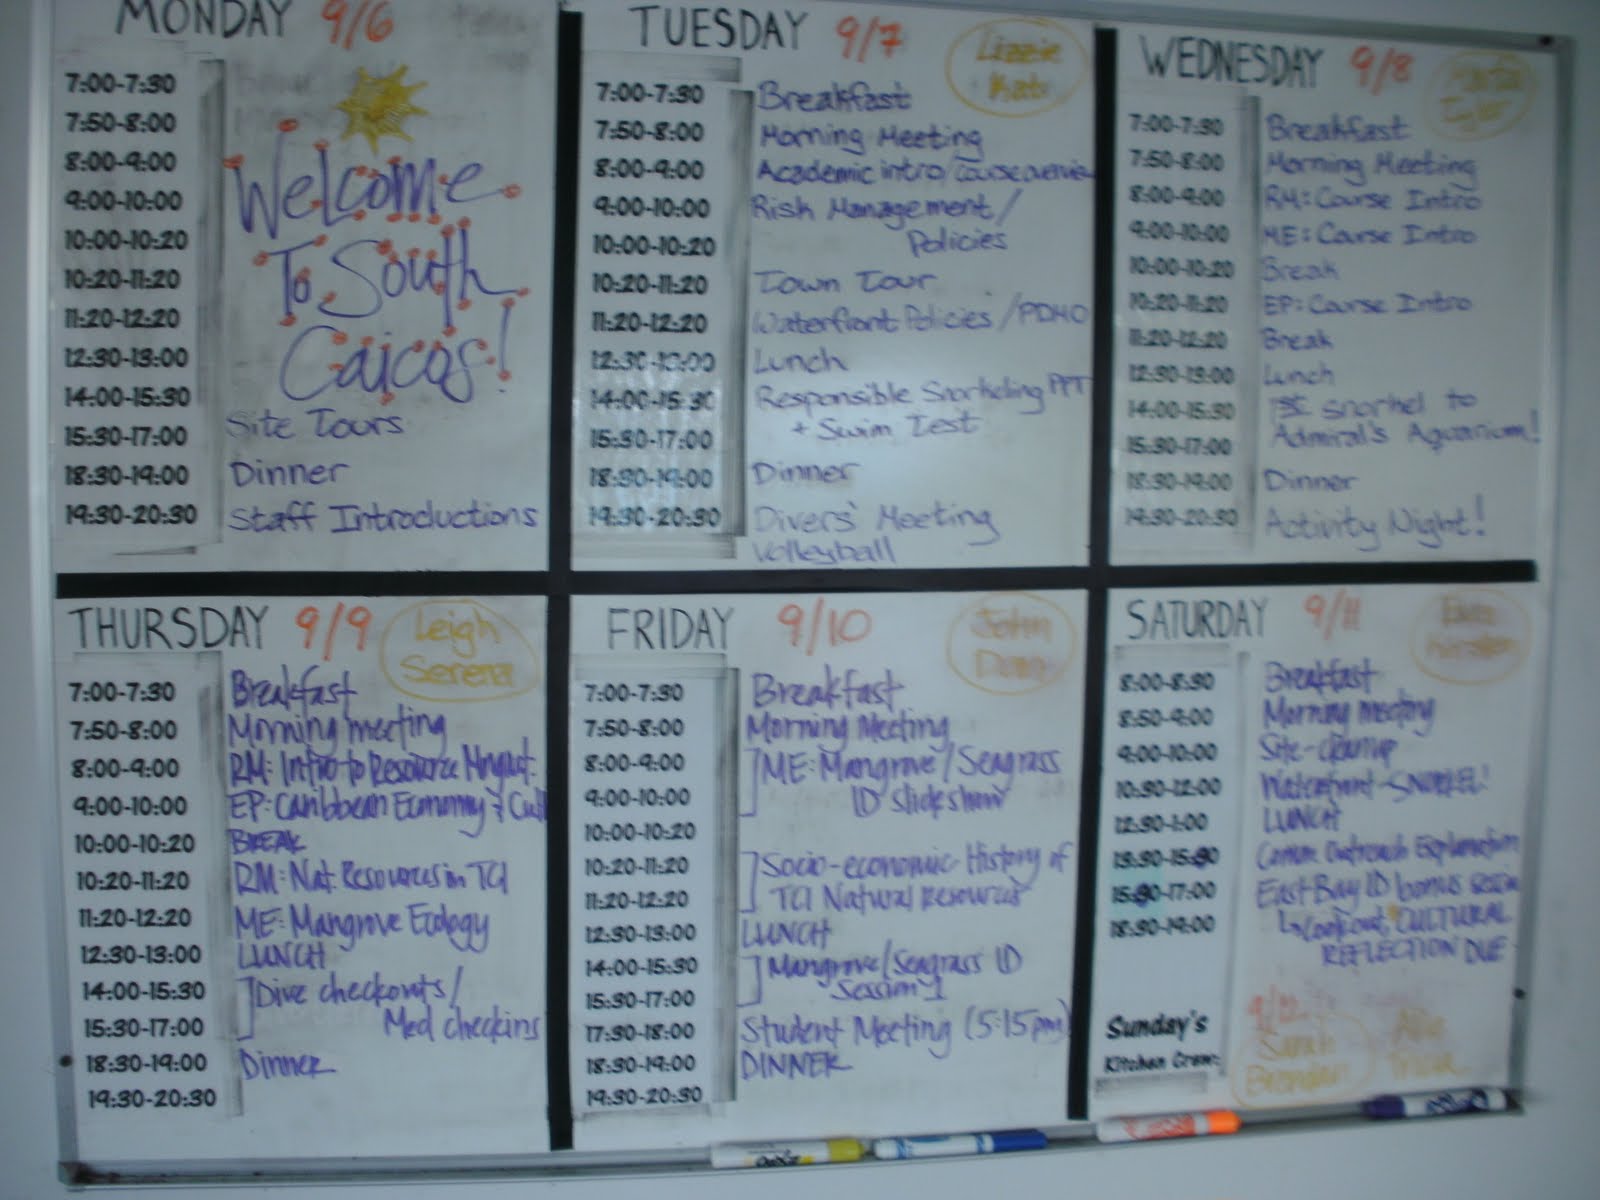 MONDAY 9/6
7:00-7:30
7:50-8:00
8:00-9:00
9:00-10:00
10:00-10:20
10:20-11:20
11:20-12:20
12:30-13:00
14:00-15:30
15:30-17:00
18:30-19:00
19:30-20:30
Welcome
To South
Caicos!
Site Tours
Dinner
Staff Introductions
TUESDAY 9/7
Lizzie
Kate
7:00-7:30 Breakfast
7:50-8:00 Morning Meeting
8:00-9:00 Academic intro/course overview
9:00-10:00 Risk Management/
10:00-10:20 Policies
10:20-11:20 Town Tour
11:20-12:20 Waterfront Policies/PDMO
12:30-13:00 Lunch
14:00-15:30 Responsible Snorkeling PPT
15:30-17:00 + Swim Test
18:30-19:00 Dinner
19:30-20:30 Divers' Meeting
Volleyball
WEDNESDAY 9/8
Tyler
7:00-7:30 Breakfast
7:50-8:00 Morning Meeting
8:00-9:00 RM: Course Intro
9:00-10:00 ME: Course Intro
10:00-10:20 Break
10:20-11:20 EP: Course Intro
11:20-12:20 Break
12:30-13:00 Lunch
14:00-15:30 snorkel to
15:30-17:00 Admiral's Aquarium!
18:30-19:00 Dinner
19:30-20:30 Activity Night!
THURSDAY 9/9
Leigh
Serena
7:00-7:30 Breakfast
7:50-8:00 Morning meeting
8:00-9:00 RM: Intro to Resource Mngmt.
9:00-10:00 EP: Caribbean Economy & Cult
10:00-10:20 BREAK
10:20-11:20 RM: Nat. Resources in TCI
11:20-12:20 ME: Mangrove Ecology
12:30-13:00 LUNCH
14:00-15:30 Dive checkouts/
15:30-17:00 Med checkins
18:30-19:00 Dinner
19:30-20:30
FRIDAY 9/10
John
7:00-7:30 Breakfast
7:50-8:00 Morning Meeting
8:00-9:00 ME: Mangrove/Seagrass
9:00-10:00 ID slideshow
10:00-10:20
10:20-11:20 Socio-economic History of
11:20-12:20 TCI Natural Resources
12:30-13:00 LUNCH
14:00-15:30 Mangrove/Seagrass ID
15:30-17:00 Session 1
17:30-18:00 Student Meeting (5:15pm)
18:30-19:00 DINNER
19:30-20:30
SATURDAY 9/11
Kirsten
8:00-8:30 Breakfast
8:50-9:00 Morning meeting
9:00-10:00 Site-cleanup
10:30-12:00 Waterfront-SNORKEL!
12:30-1:00 LUNCH
13:30-15:30 Comm. Outreach Explanation
15:30-17:00 East Bay ID bonus session
18:30-19:00 Cookout, CULTURAL
REFLECTION DUE
Sunday's
Kitchen Crew:
9/12
Sarah
Brendan
Tricia